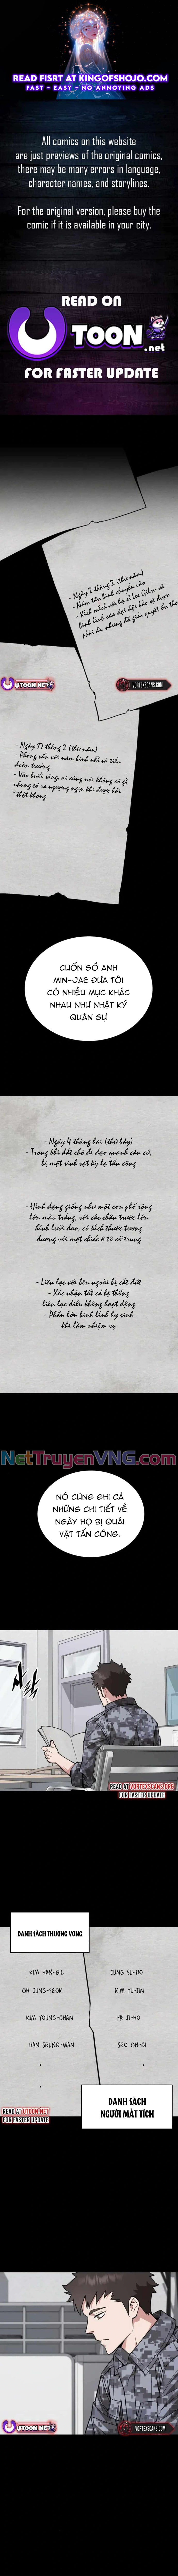 READ FISRT AT KINGOFSHOJO.COM
FAST - EASY - NO ANNOYING ADS
All comics on this website
are just previews of the original comics,
there may be many errors in language,
character names, and storylines.
For the original version, please buy the
comic if it is available in your city.
READ ON
TOON
.net
FOR FASTER UPDATE
- Ngày 2 tháng 2 (thứ năm)
- Năm tân binh chuyển vào
- Xích mích với hạ sĩ
binh lính của đại đội bảo vệ được
phái đi, nhưng đã giải quyết ổn thỏ
UTOON.NET
VORTEXSCANS.COM
- Ngày 17 tháng 2 (thứ năm)
- Phỏng vấn với năm binh nhì và tiểu
đoàn trưởng
- Vào buổi sáng, ai cũng nói không có gì
nhưng tỏ ra ngượng ngịu khi được hỏi
"thật không
CUỐN SỔ ANH
MIN-JAE ĐƯA TÔI
CÓ NHIỀU MỤC KHÁC
NHAU NHƯ NHẬT KÝ
QUÂN SỰ
- Ngày 4 tháng hai (thứ bảy)
- Trong khi dắt chó đi dạo quanh căn cứ,
bị một sinh vật kỳ lạ tấn công
- Hình dạng giống như một con hổ rộng
lớn màu trắng, với các chân trước lớn
hình lưỡi dao, có kích thước tương
đương với một chiếc ô tô cỡ trung
- Liên lạc với bên ngoài bị cắt đứt
- Xác nhận tất cả hệ thống
liên lạc đều không hoạt động
- Phần lớn binh lính hy sinh
khi làm nhiệm vụ
NetTruyenVNG.com
NÓ CŨNG GHI CẢ
NHỮNG CHI TIẾT VỀ
NGÀY HỌ BỊ QUÁI
VẬT TẤN CÔNG.
READ AT VORTEXSCANS.ORG
FOR FASTER UPDATE
DANH SÁCH THƯƠNG VONG
KIM HAN-GIL
JUNG SU-HO
OH JUNG-SEOK
KIM YU-JIN
KIM YOUNG-CHAN
HA JI-HO
HAN SEUNG-WAN
SEO OH-GI
DANH SÁCH
NGƯỜI MẤT TÍCH
READ AT UTOON.NET
FOR FASTER UPDATE
UTOON.NET
VORTEXSCANS.COM